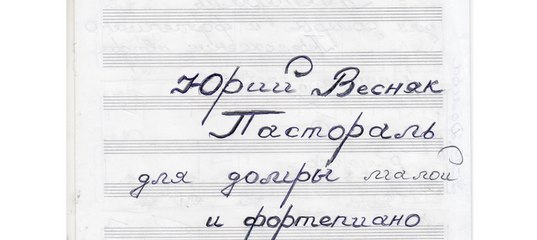 Юрий Весняк
Пастораль
для домры малой
и фортепиано